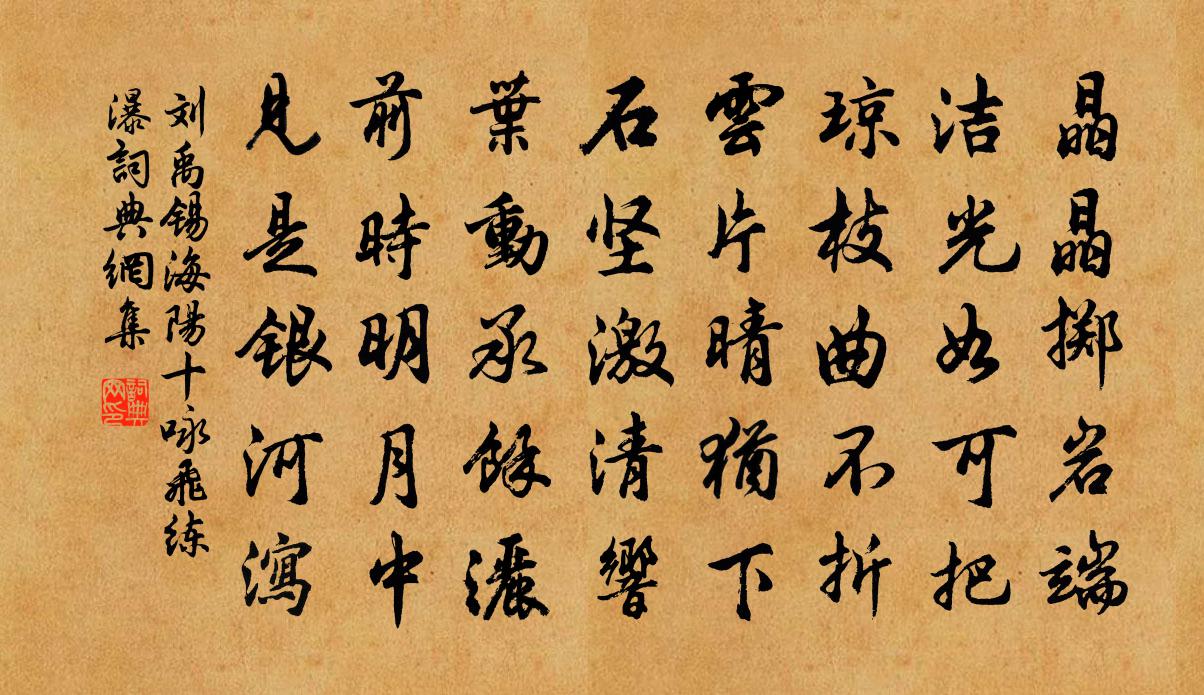 晶晶掷岩端
洁光如可把
琼枝曲不折
雲片晴猶下
石坚激清響
葉動承餘灑
前時明月中
見是银河瀉
刘禹锡海陽十咏飛练
瀑詞典網集
詞典
网印